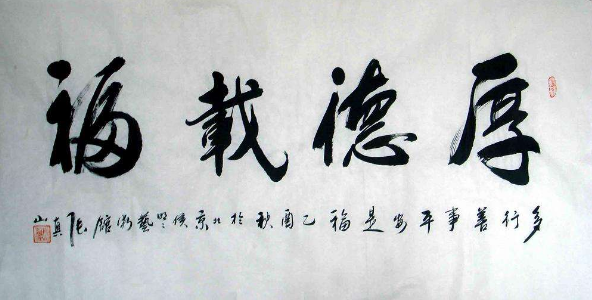 厚德載福
多行善事平安是福乙酉秋於北京藝術館張真山